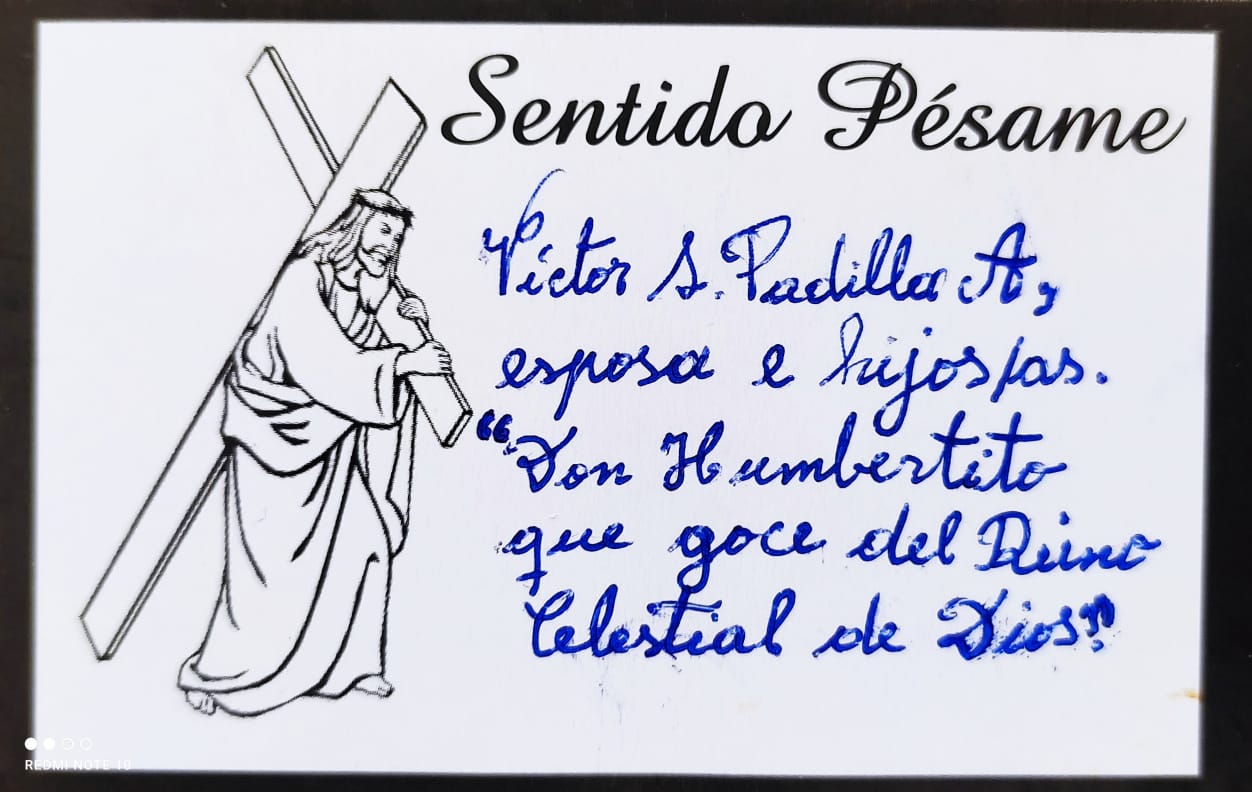 Sentido Pésame
Víctor S. Padilla A,
esposa e hijos/as.
"Don Humbertito
que goce del Reino
Celestial de Dios"
REDMI NOTE 10